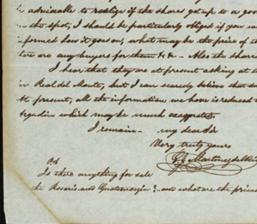 advisable to realize if the shares get up to a go
the spot, I should be particularly obliged if you w
informed how it goes on, what may be the price of th
are any buyers for them &c. Also the shares
I hear that they are at present asking at
in Real del Monte, but I can scarcely believe that
At present, all the information we have is reduced
which may be much exaggerated.
I remain my dear Sir
Very truly yours
Martinez del Rio
Is there anything for sale
the Rosario and and what are the prices